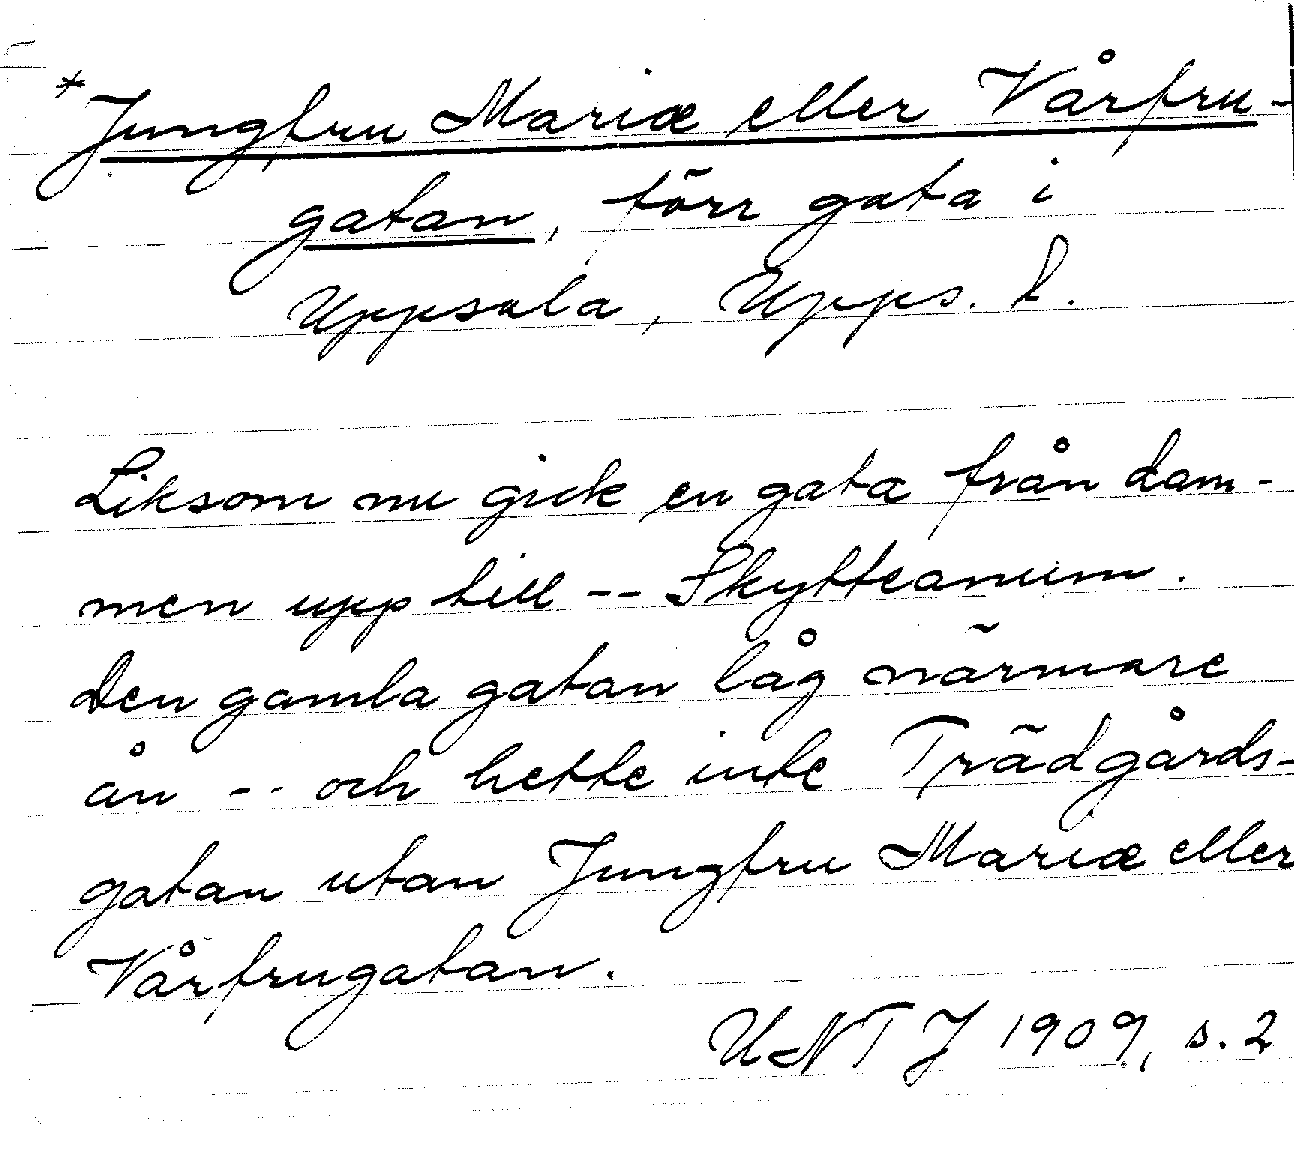 *Jungfru Mariæ eller Vårfru-
gatan, förr gata i
Uppsala, Upps. l.
Liksom nu gick en gata från dam-
men upp till -- Skytteanum.
Den gamla gatan låg närmare
ån -- och hette inte Trädgårds-
gatan utan Jungfru Mariæ eller
Vårfrugatan.
UNTJ 1909, s. 2